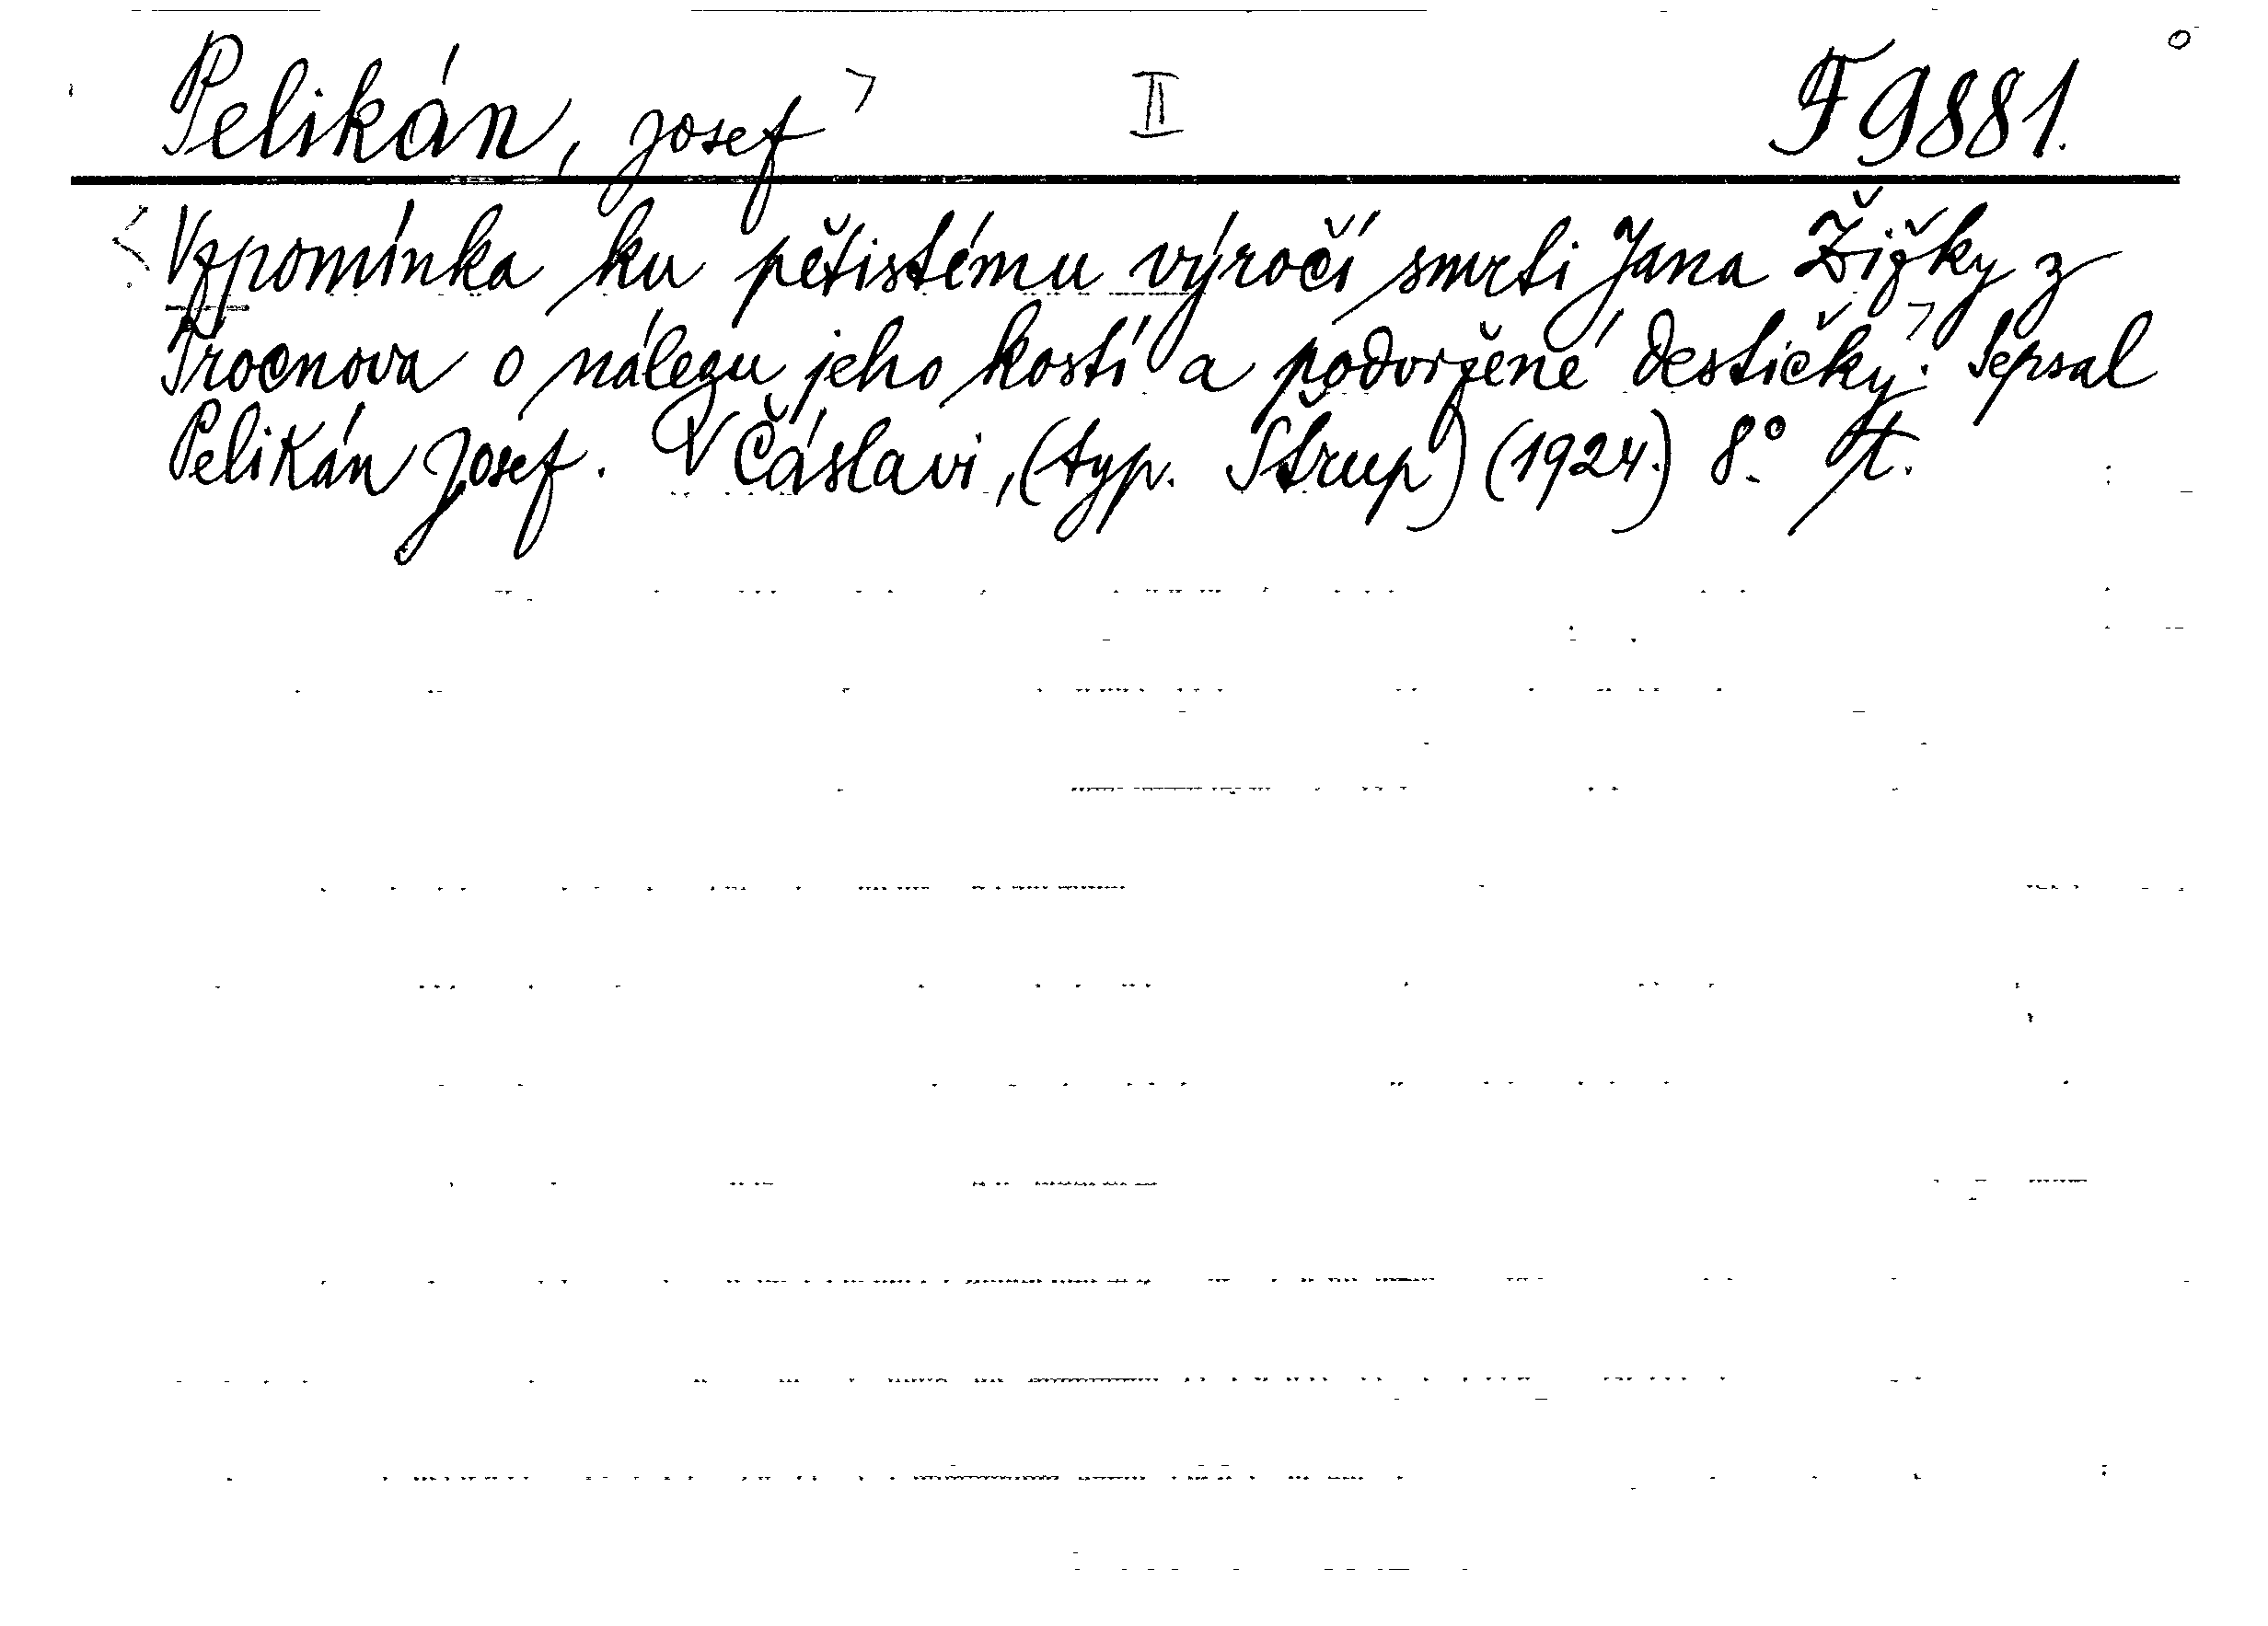 Pelikán, Josef II F 9881.
Vzpomínka ku pětistému výročí smrti Jana Žižky z
Trocnova o nálezu jeho kostí a podvržené destičky. Sepsal
Pelikán Josef. V Čáslavi, (typ. Střup) (1924.) 8°.